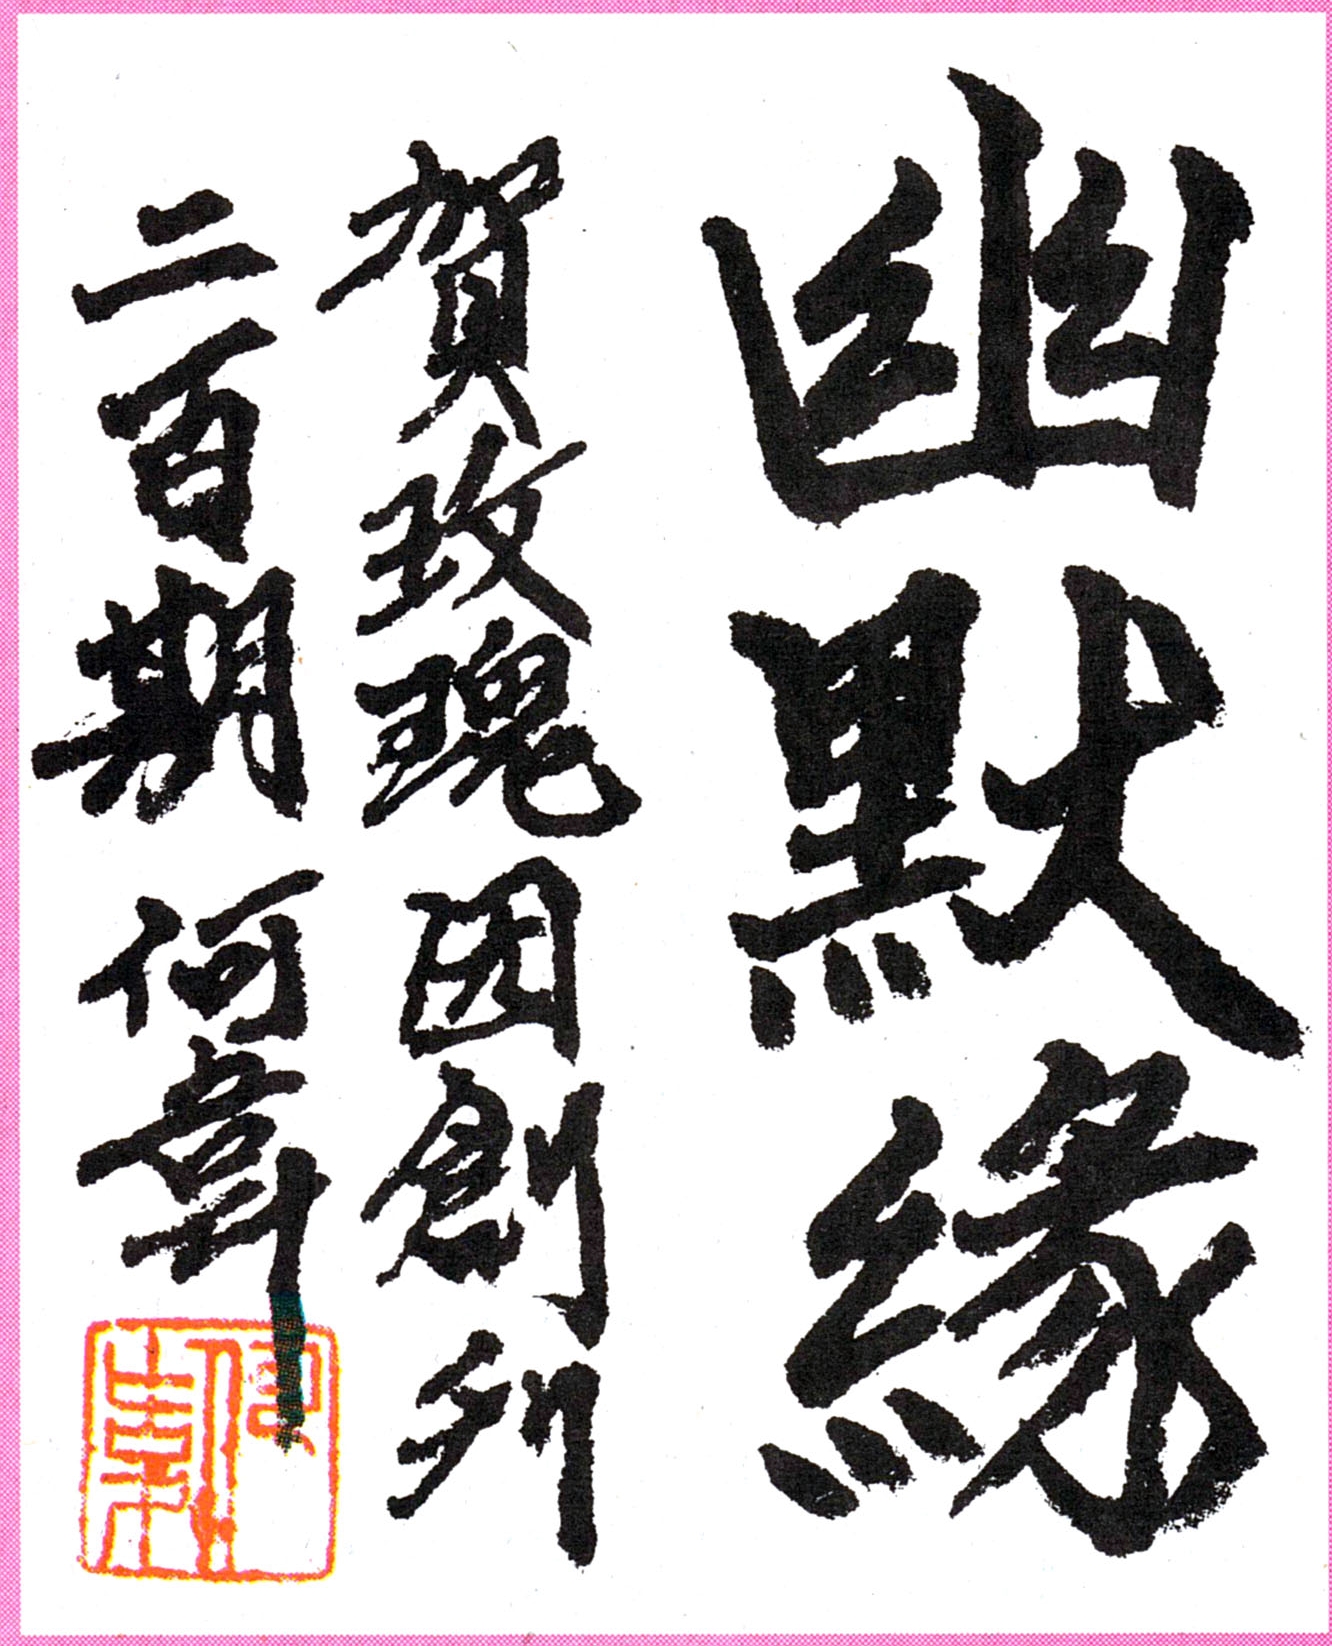 幽默緣
賀玫瑰园創刊
二百期 何韋